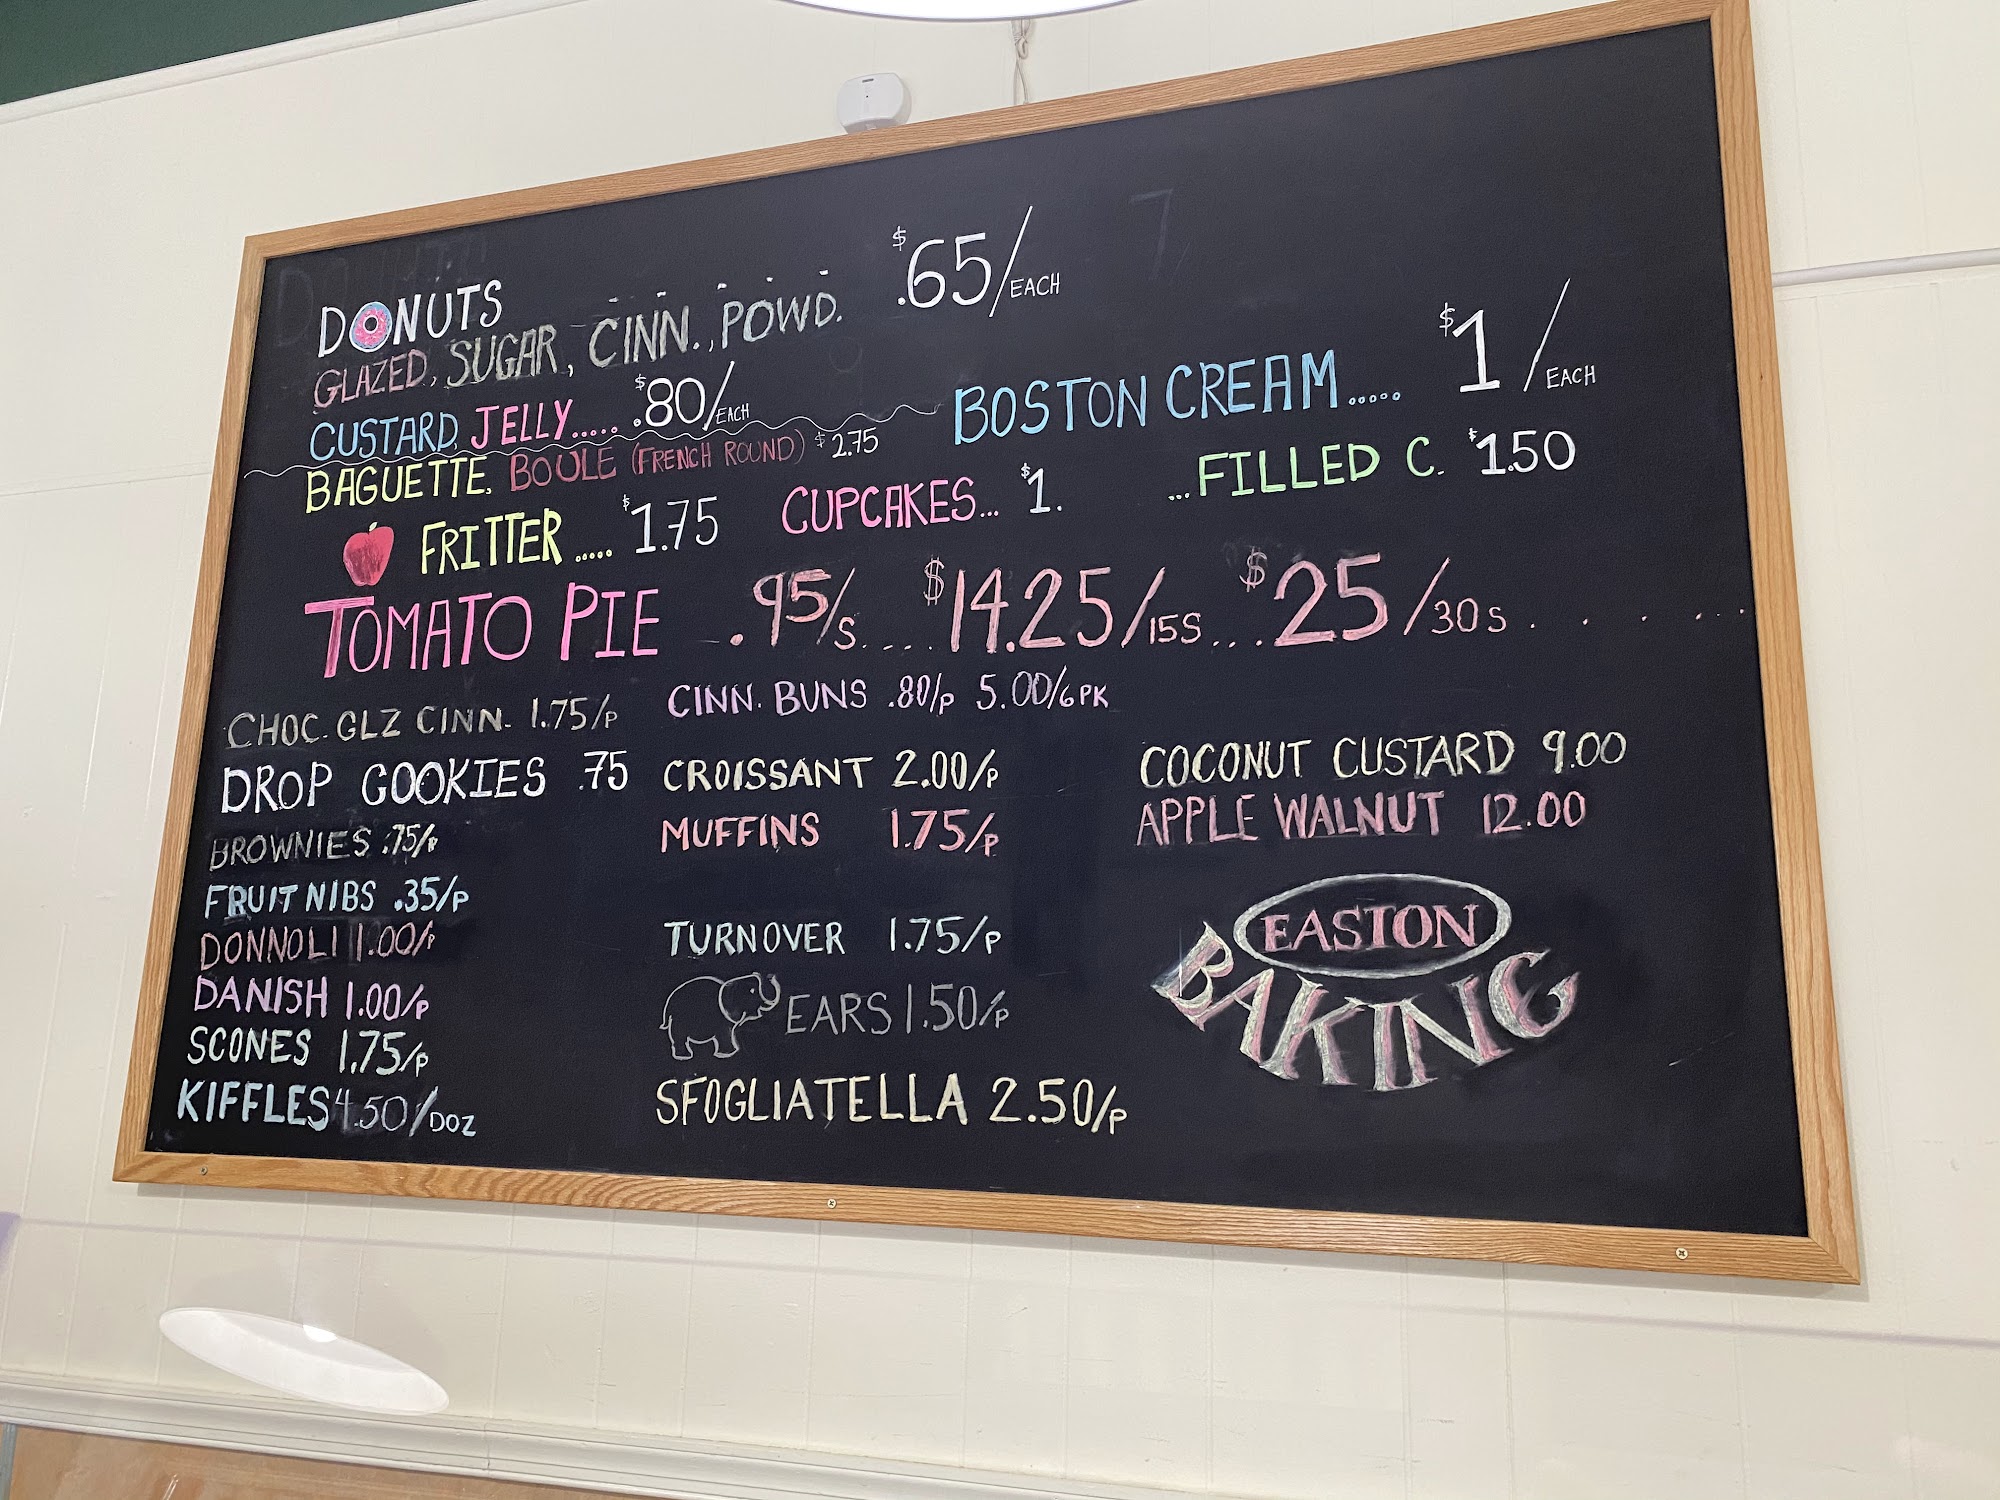 DONUTS $.65/EACH
GLAZED, SUGAR, CINN., POWD.
CUSTARD, JELLY..... $.80/EACH
BOSTON CREAM..... $1/EACH
BAGUETTE, BOULE (FRENCH ROUND) $2.75
FRITTER ..... $1.75 CUPCAKES... $1. ...FILLED C. $1.50
TOMATO PIE .95/S.... $14.25/15S... $25/30S......
CHOC. GLZ CINN. 1.75/P
DROP COOKIES .75
BROWNIES .75/P
FRUIT NIBS .35/P
DONNOLI 1.00/P
DANISH 1.00/P
SCONES 1.75/P
KIFFLES 4.50/DOZ
CINN. BUNS .80/P 5.00/6PK
CROISSANT 2.00/P
MUFFINS 1.75/P
TURNOVER 1.75/P
EARS 1.50/P
SFOGLIATELLA 2.50/P
COCONUT CUSTARD 9.00
APPLE WALNUT 12.00
EASTON
BAKING